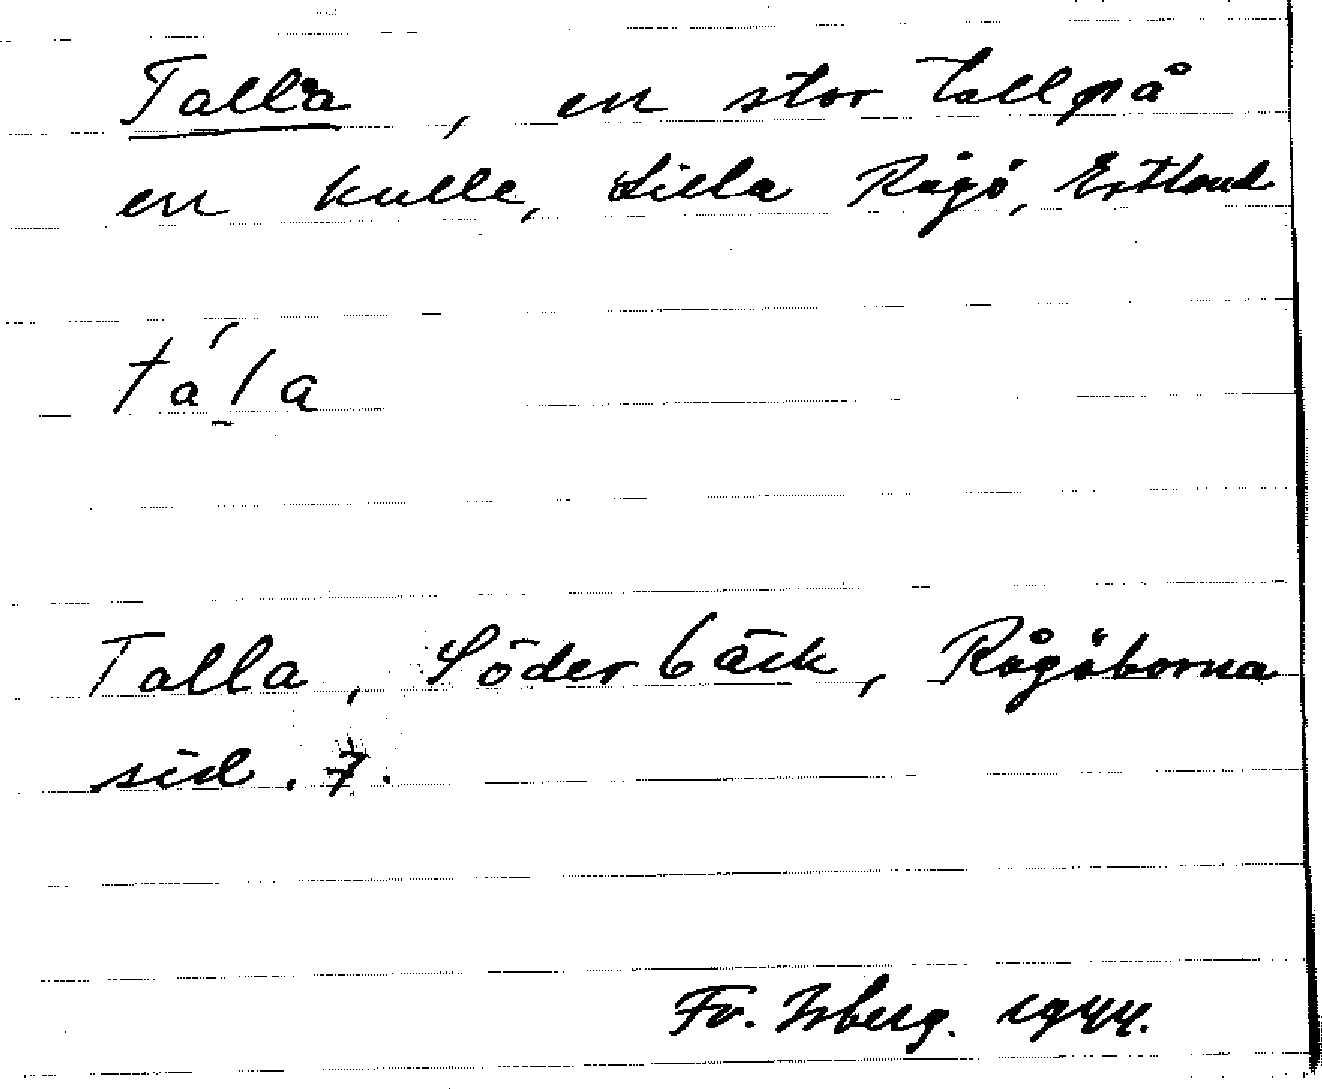 Talla, en stor tall på
en kulle, Lilla Rågö, Estland
tá̱la
Talla, Söderbäck, Rågöborna
sid. 7.
Fr. Isberg. 1944.